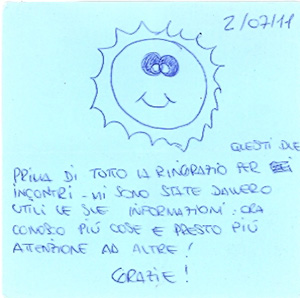 2/07/11
QUESTI DUE
PRIMA DI TUTTO LA RINGRAZIO PER
INCONTRI - MI SONO STATE DAVVERO
UTILI LE SUE INFORMAZIONI: ORA
CONOSCO PIÚ COSE E PRESTO PIÚ
ATTENZIONE AD ALTRE!
GRAZIE!